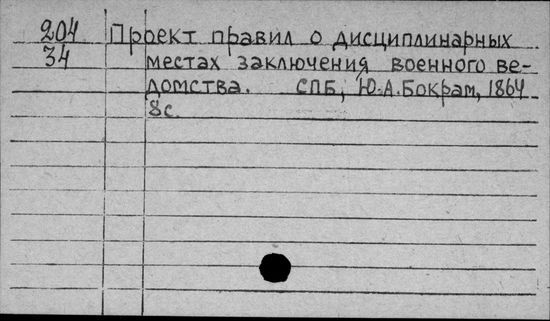 204 Проект правил о дисциплинарных
34 местах заключения военного ве-
домства. СПБ, Ю.А.Бокрам, 1864
8с.